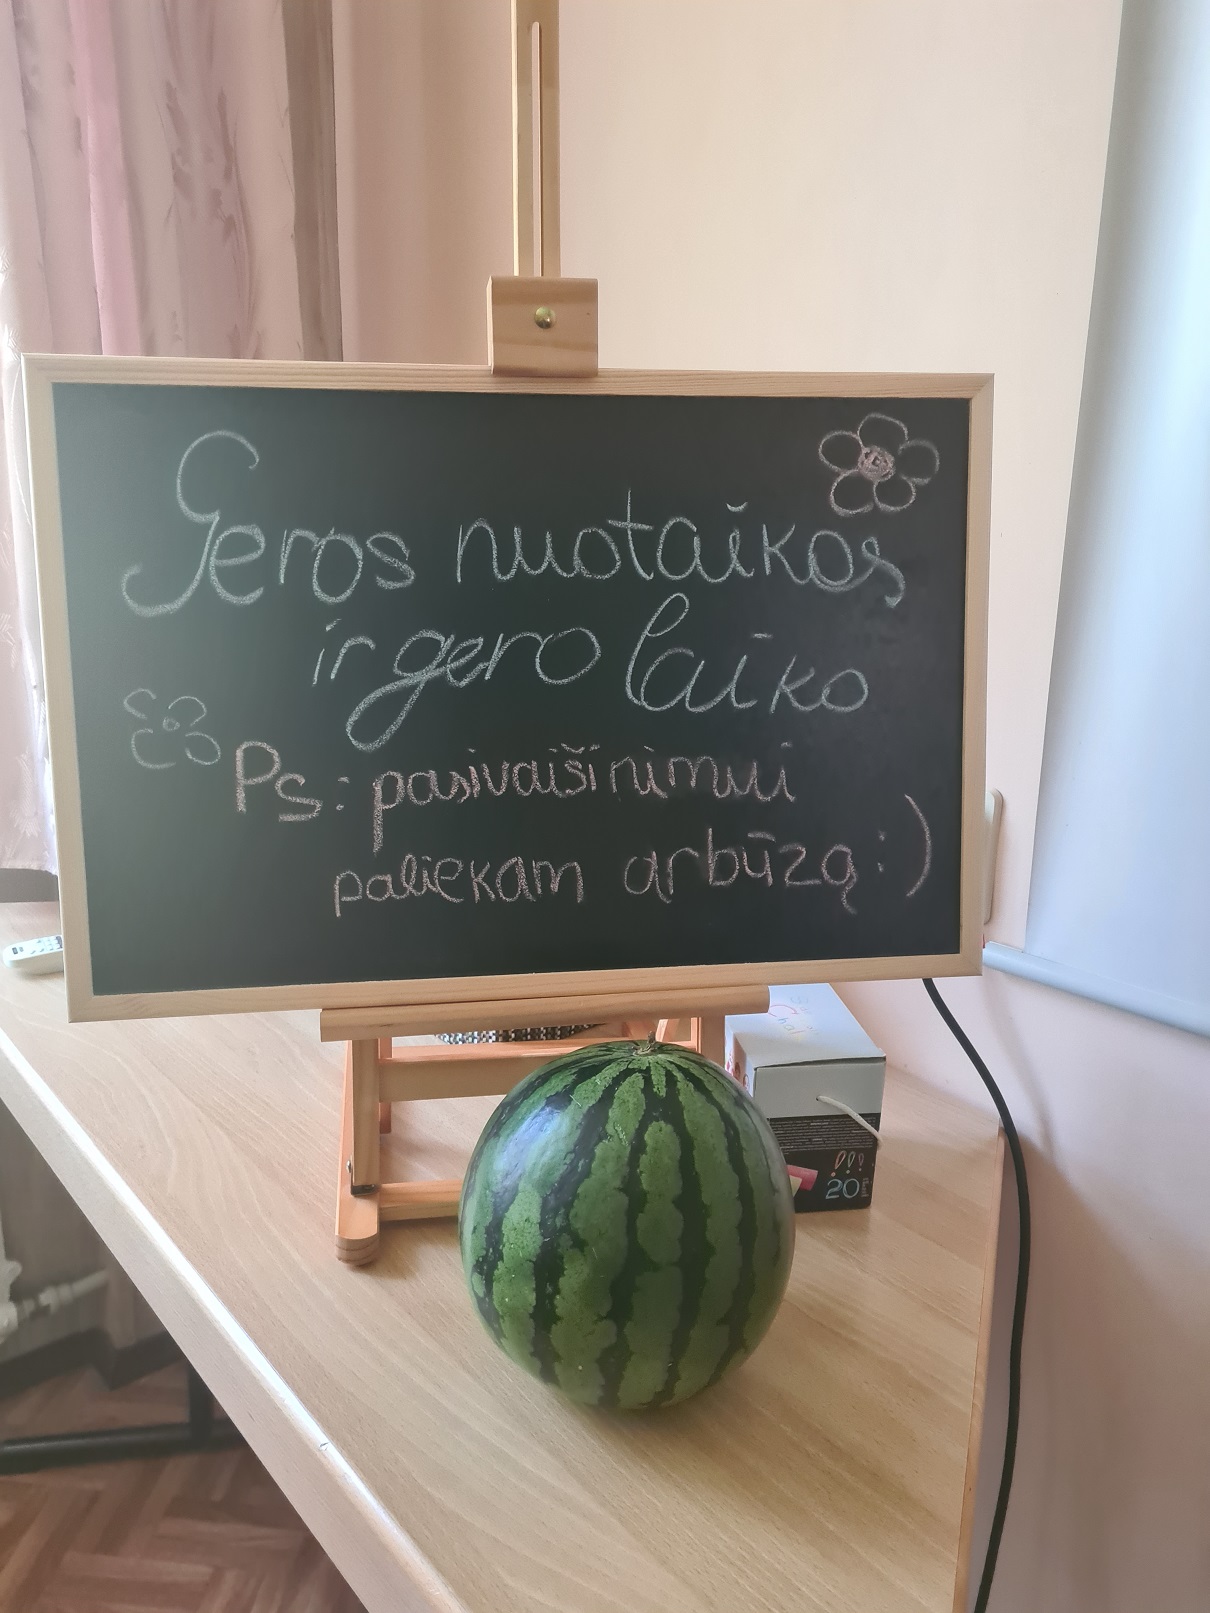 Geros nuotaikos
ir gero laiko
Ps: pasivaišinimui
paliekam arbūzą :)
20